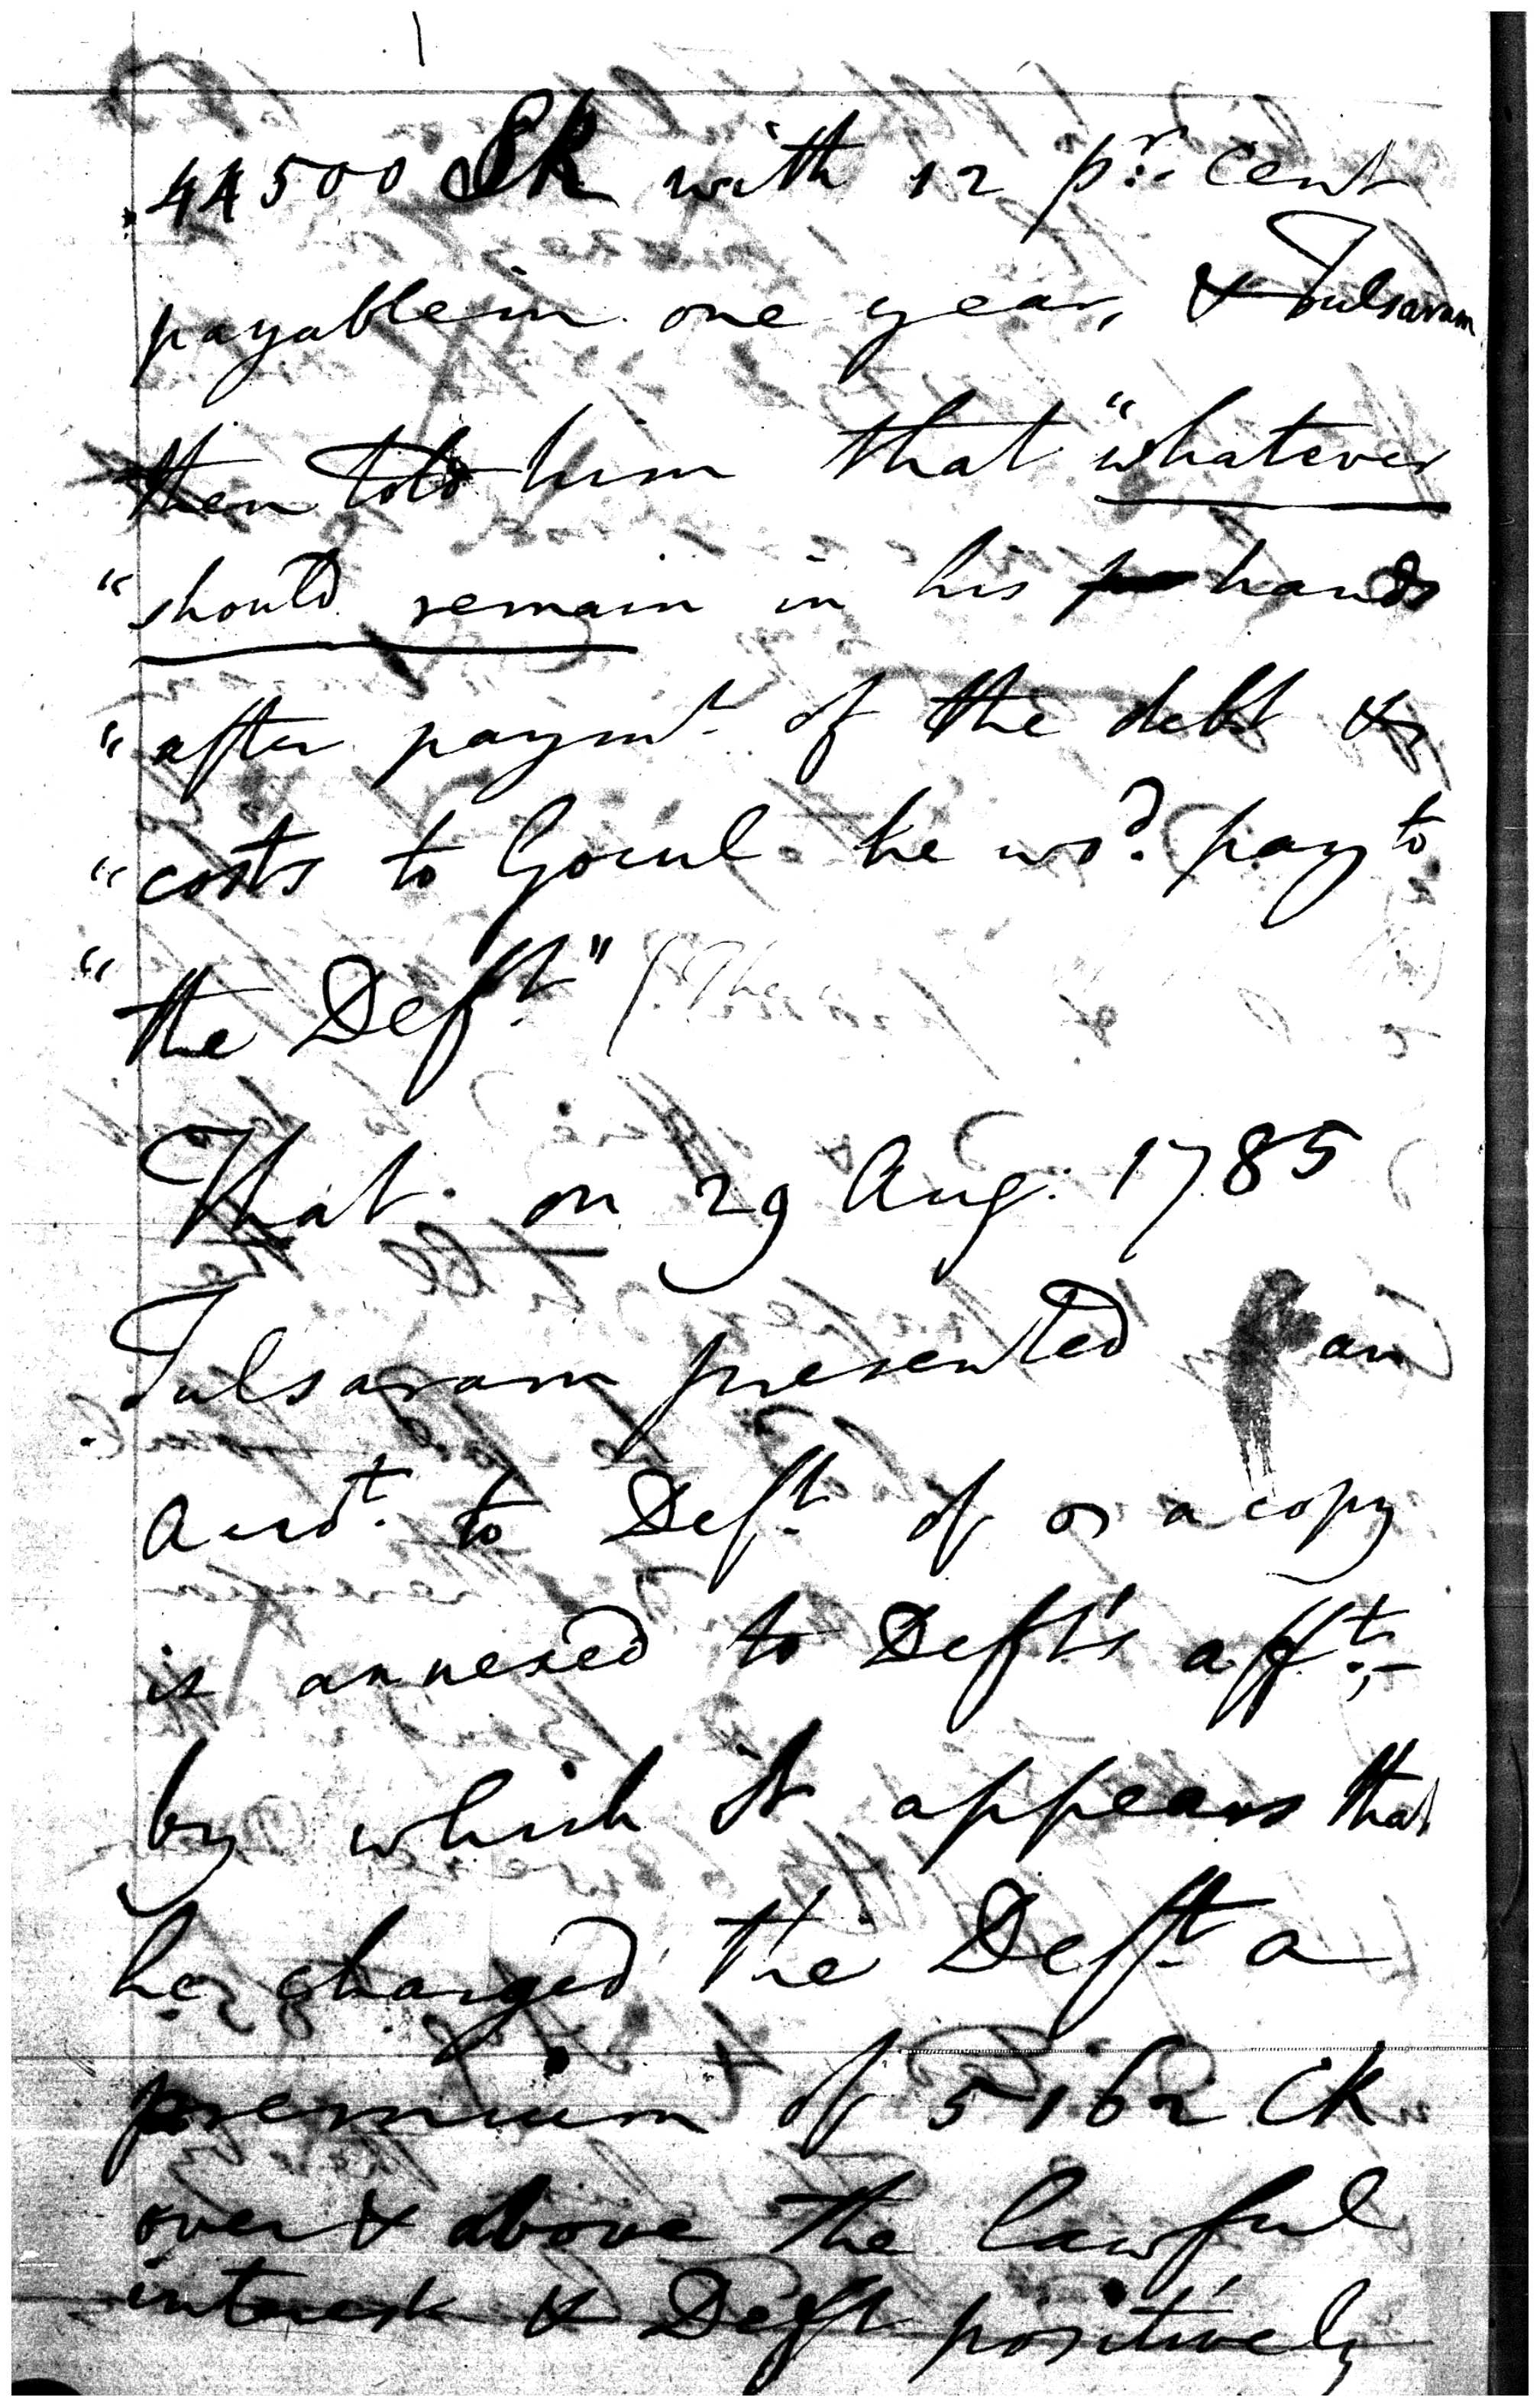 44500 SR with 12 pr. Cent
payable in one year, & Tulsaram
then told him that "whatever
"should remain in his hands
"after paymt. of the debt &
"costs to Gocul he wd. pay to
"the Deft."
That on 29 Aug. 1785
Tulsaram presented an
Accot. to Deft. of a copy
is annexed to Deft's afft.,
by which it appears that
he charged the Deft. a
premium of 5162 CR
over & above the lawful
interest & Deft positively